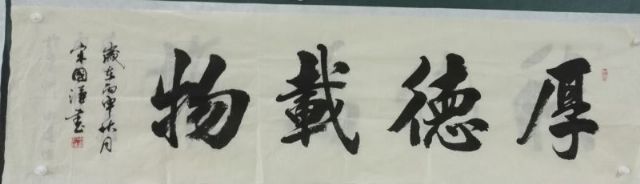 厚德載物
歲在丙申六月
宋國澤書